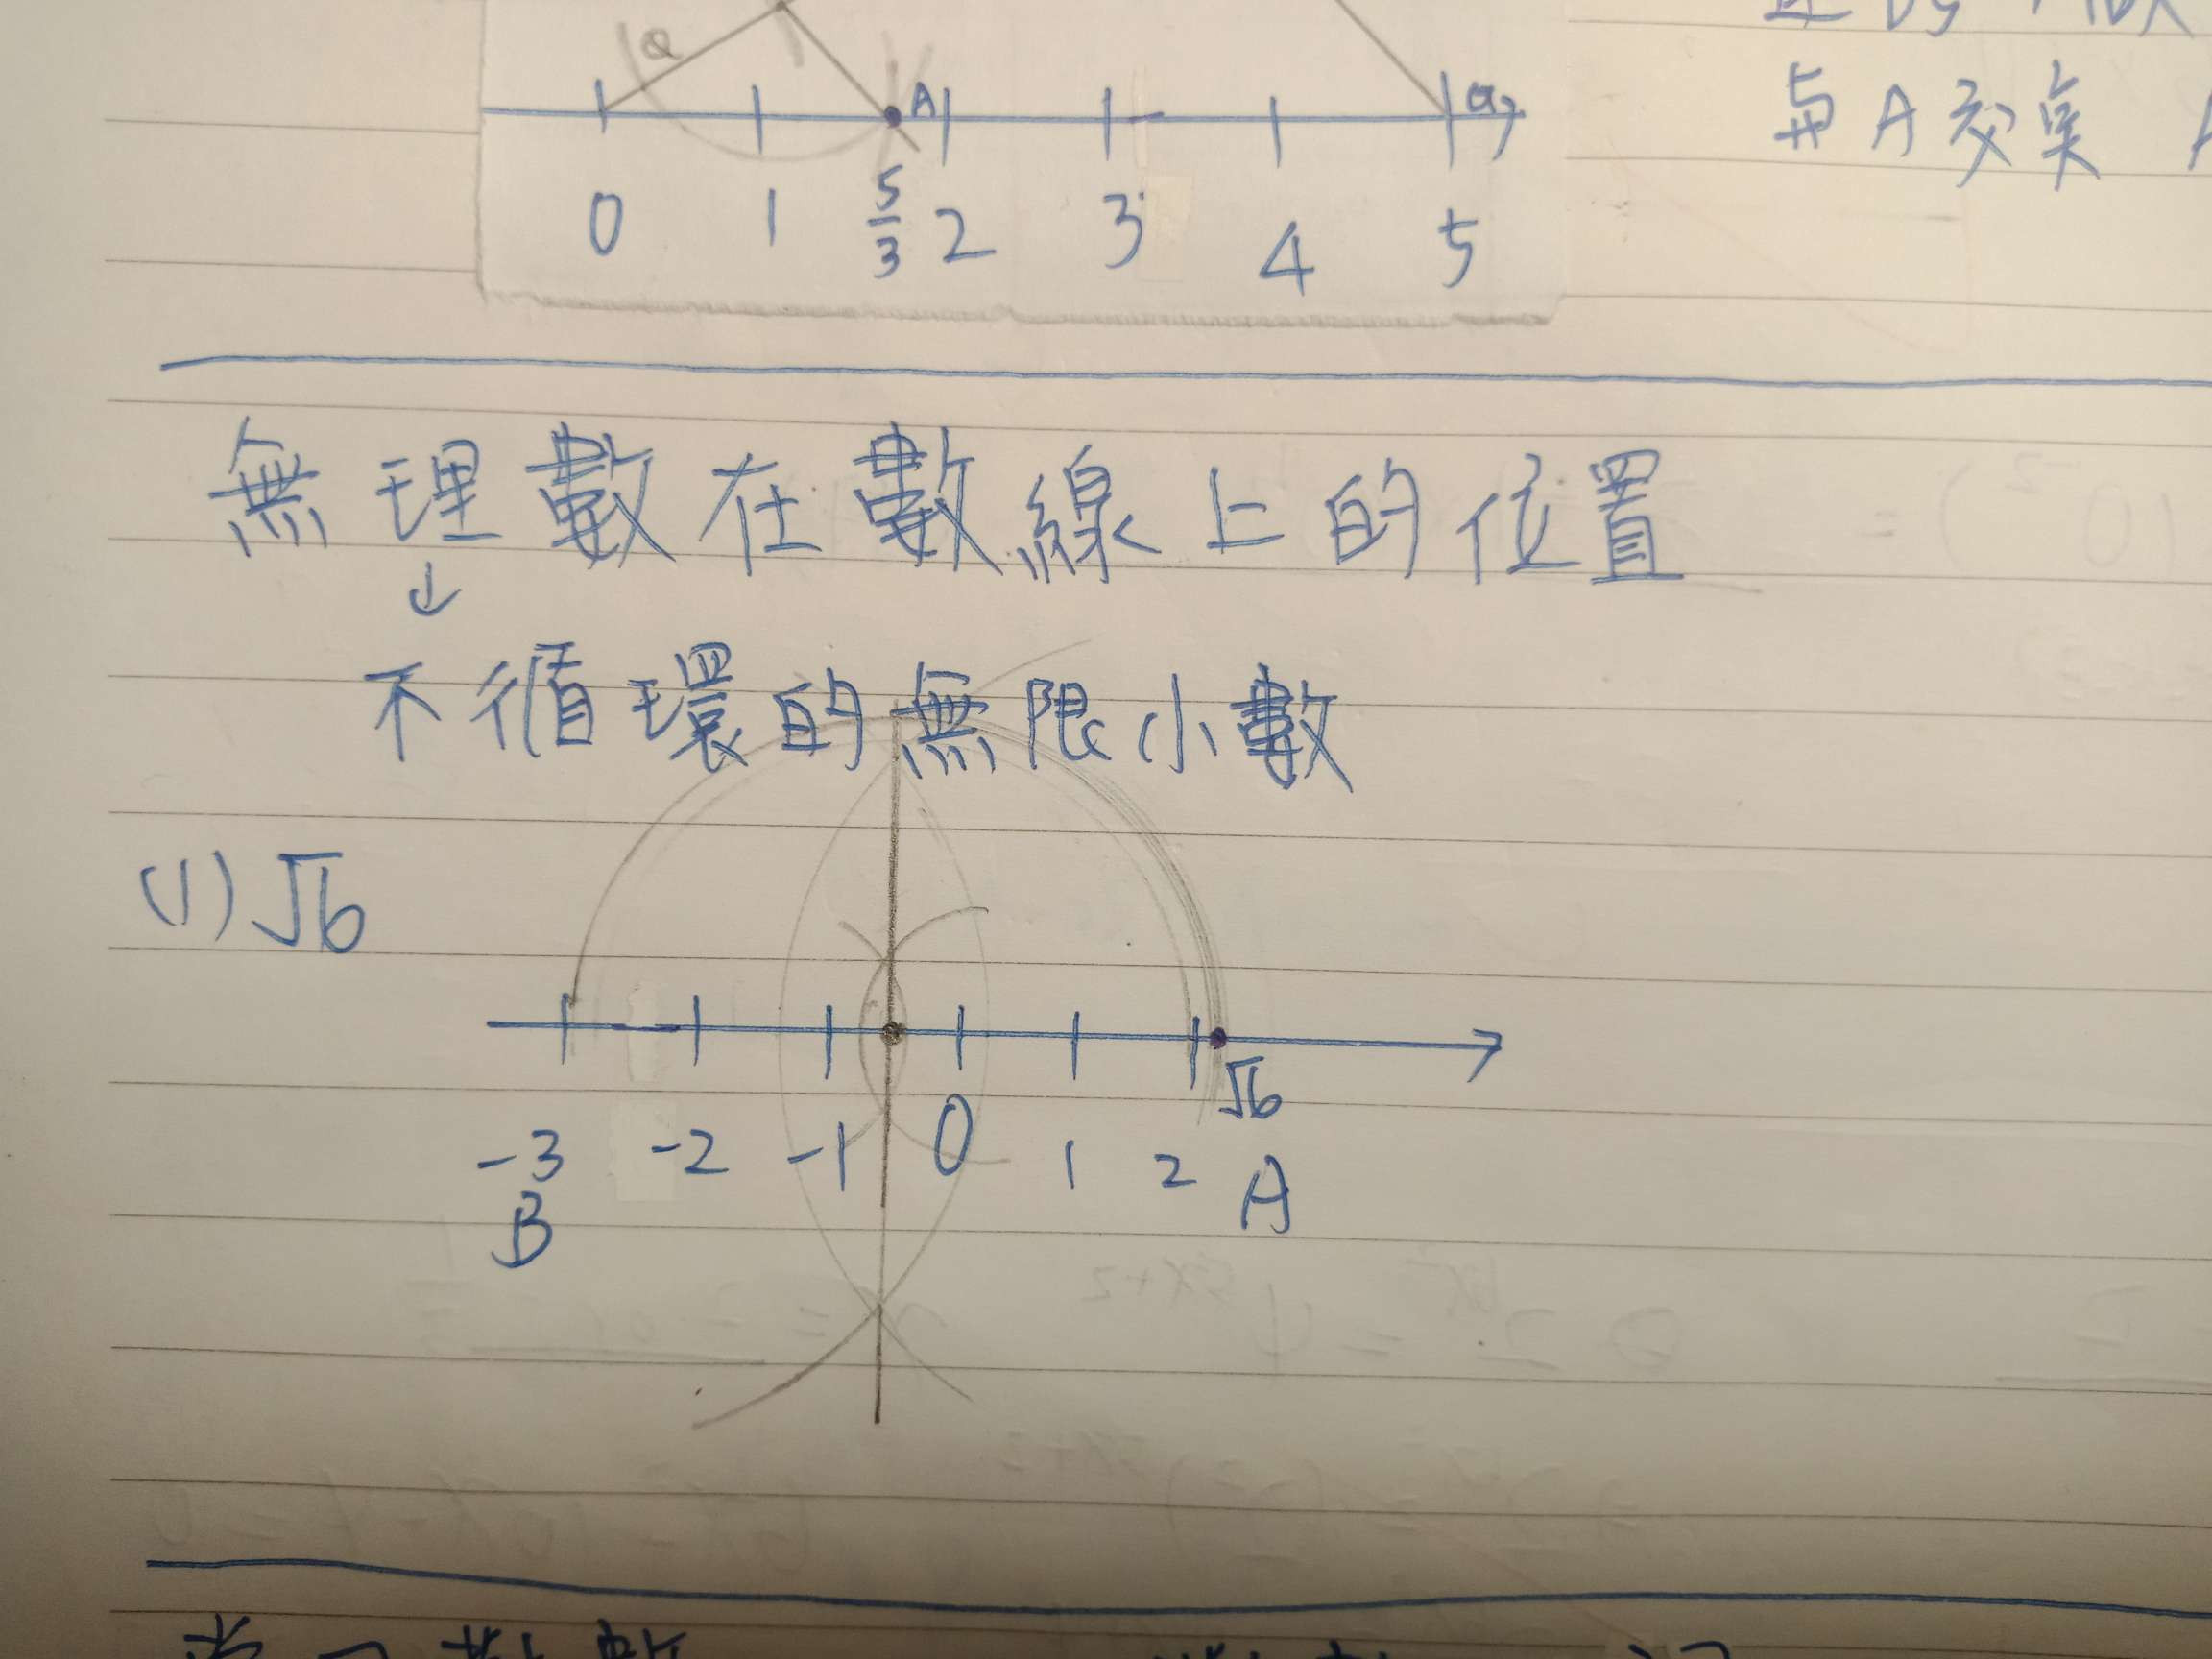 a
A
a
与A交集
0 1 5/3 2 3 4 5
無理數在數線上的位置
↓
不循環的無限小數
(1) √6
√6
-3 -2 -1 0 1 2 A
B